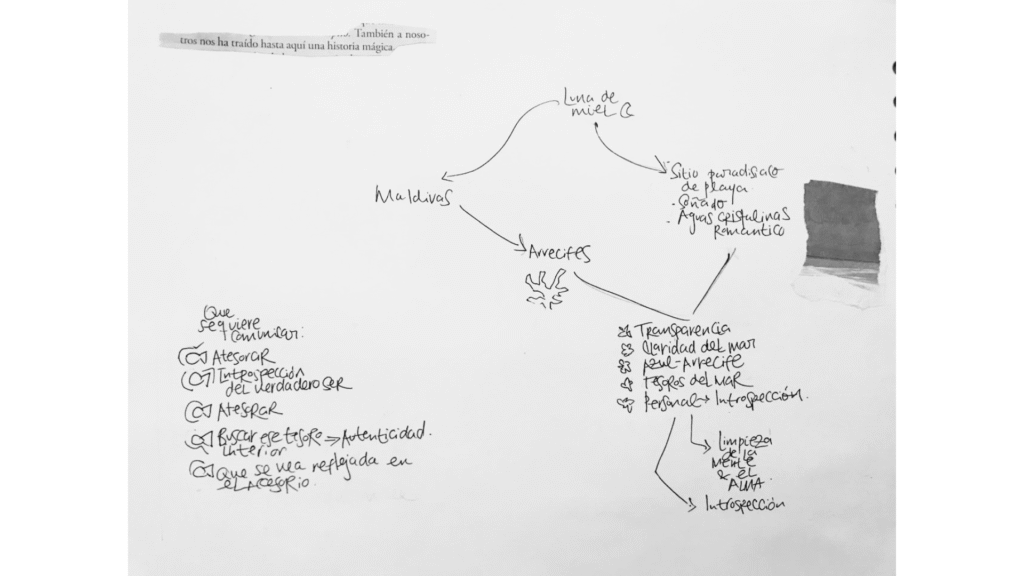 . También a noso-
tros nos ha traído hasta aquí una historia mágica
Luna de
miel
Maldivas
Sitio paradisaco
de playa
. Soñado
. Aguas cristalinas
Romantico
Arrecifes
Transparencia
Claridad del mar
Azul-Arrecife
Tesoros del MAR
Personal → Introspección.
Limpieza
de la
Mente
& el
ALMA
Introspección
Que
se quiere
comunicar:
Atesorar
Introspección
del verdadero SER
Atesorar
Buscar ese tesoro → Autenticidad.
interior
Que se vea reflejada en
el accesorio.